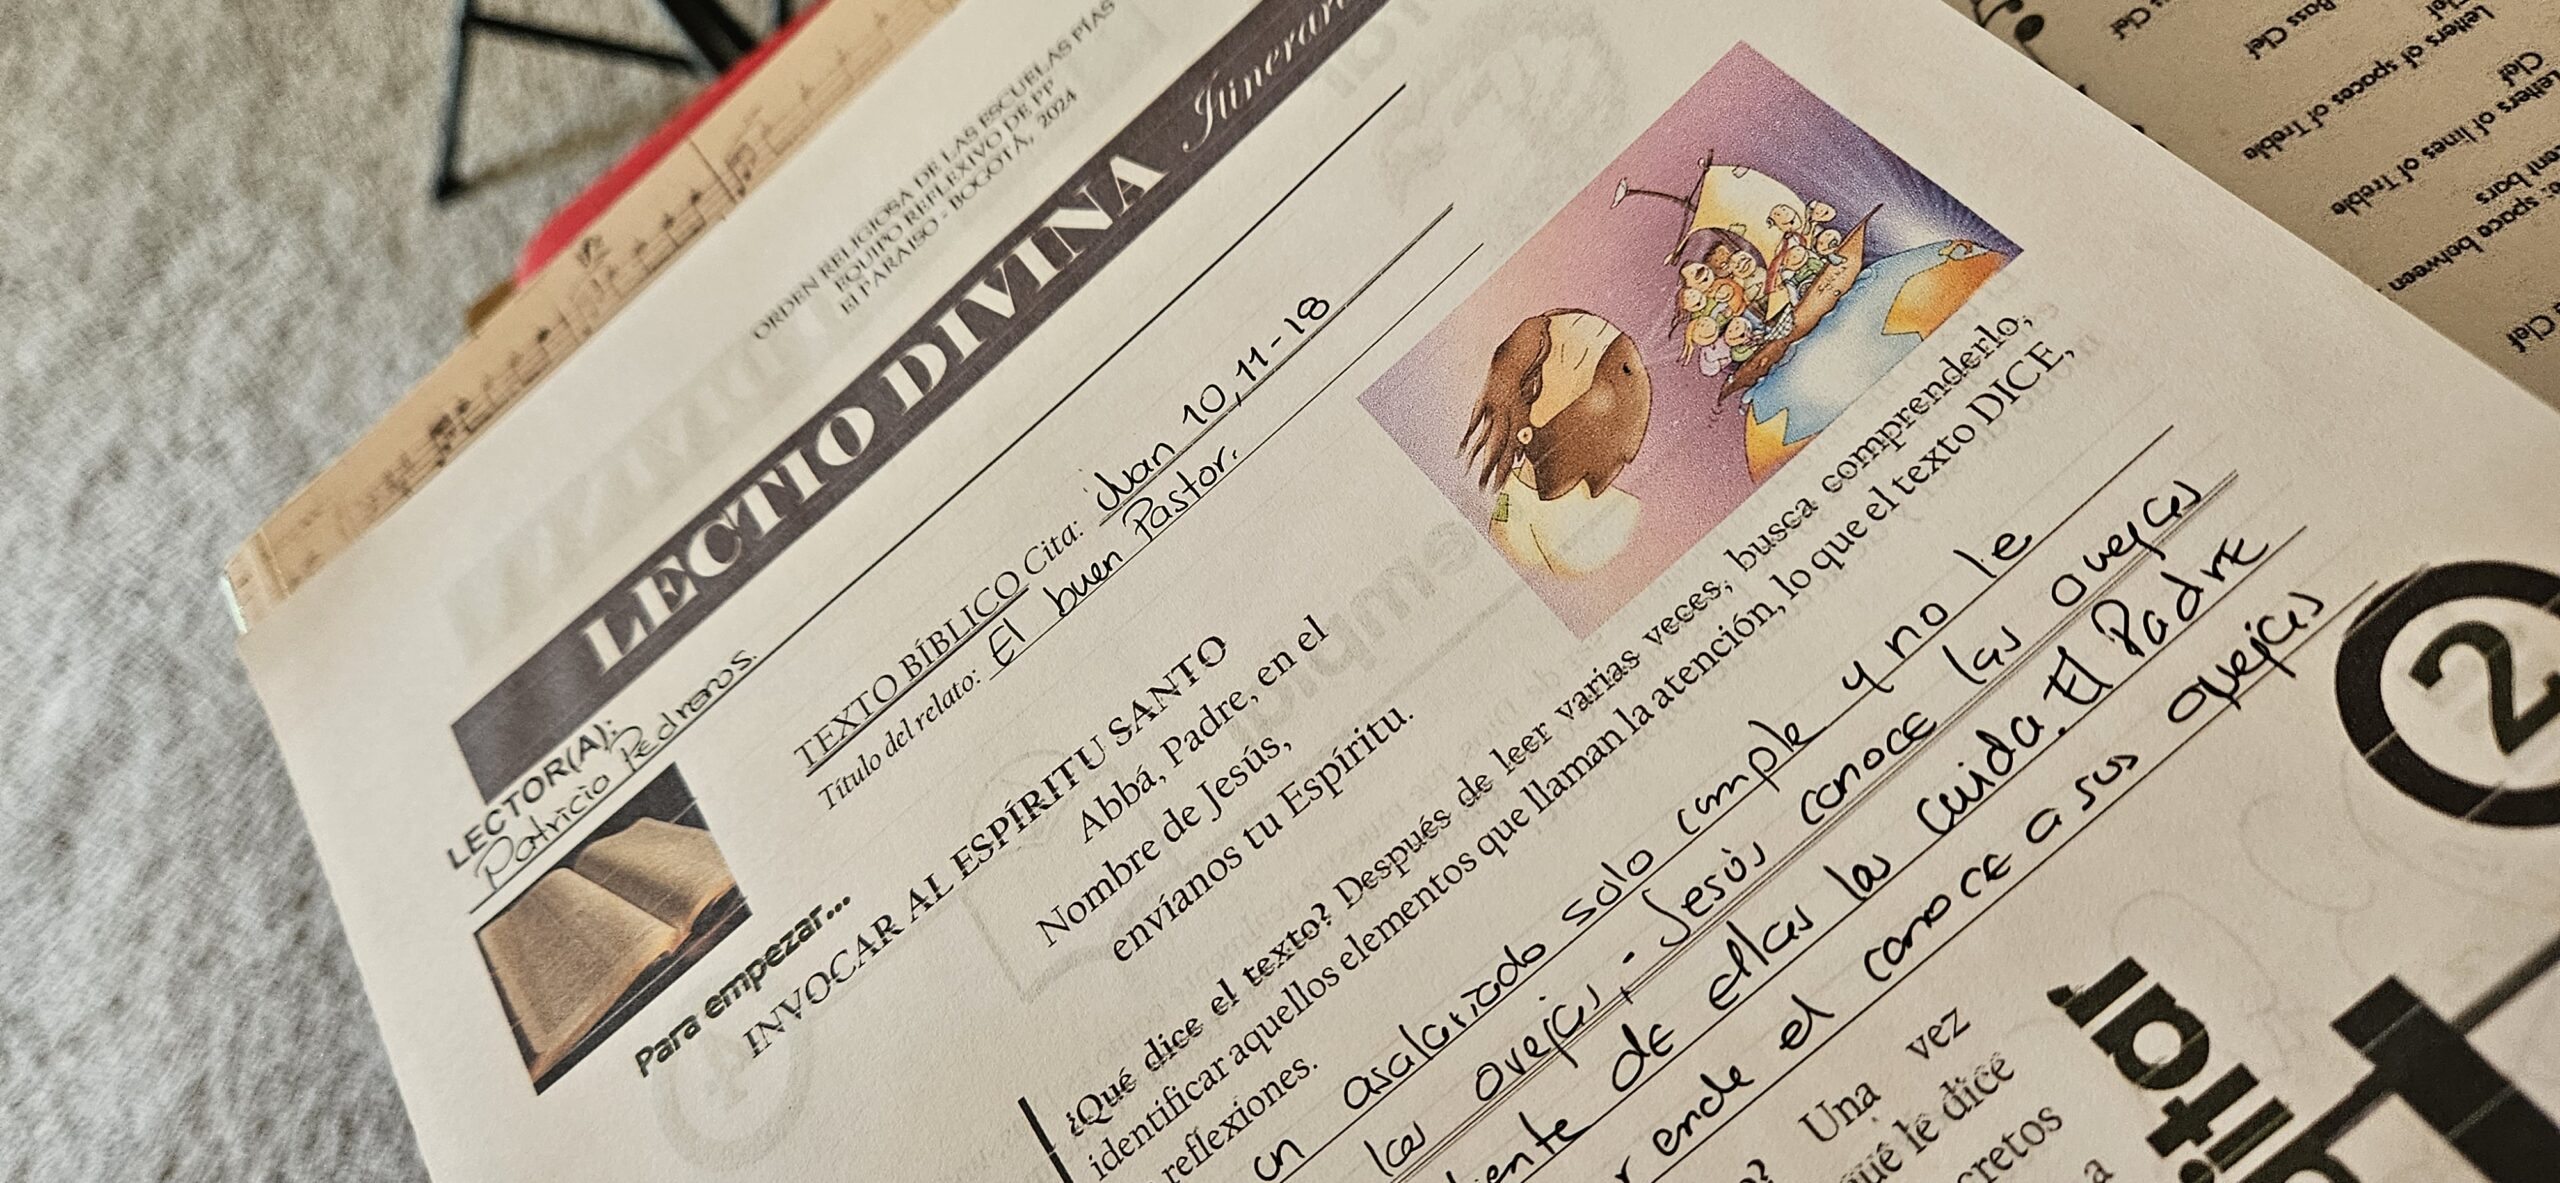 ORDEN RELIGIOSA DE LAS ESCUELAS PÍAS
EQUIPO REFLEXIVO DE PP
El PARAISO - BOGOTÁ, 2024
LECTIO DIVINA
LECTOR(A):
Patricio Pedreros.
TEXTO BÍBLICO Cita: Juan 10, 11-18
Título del relato: El buen Pastor.
Para empezar...
INVOCAR AL ESPÍRITU SANTO
Abbá, Padre, en el
Nombre de Jesús,
envíanos tu Espíritu.
¿Qué dice el texto? Después de leer varias veces, busca comprenderlo,
identificar aquellos elementos que llaman la atención, lo que el texto DICE,
reflexiones.
un asalariado solo cumple y no le
las ovejas, - Jesús conoce las ovejas
de ellas las cuida. El Padre
ende el conoce a sus ovejas
2
Una vez
qué le dice
Clef
Bass Clef
Letters of spaces of Treble
Clef
Letters of lines of Treble
bars
space between
Clef